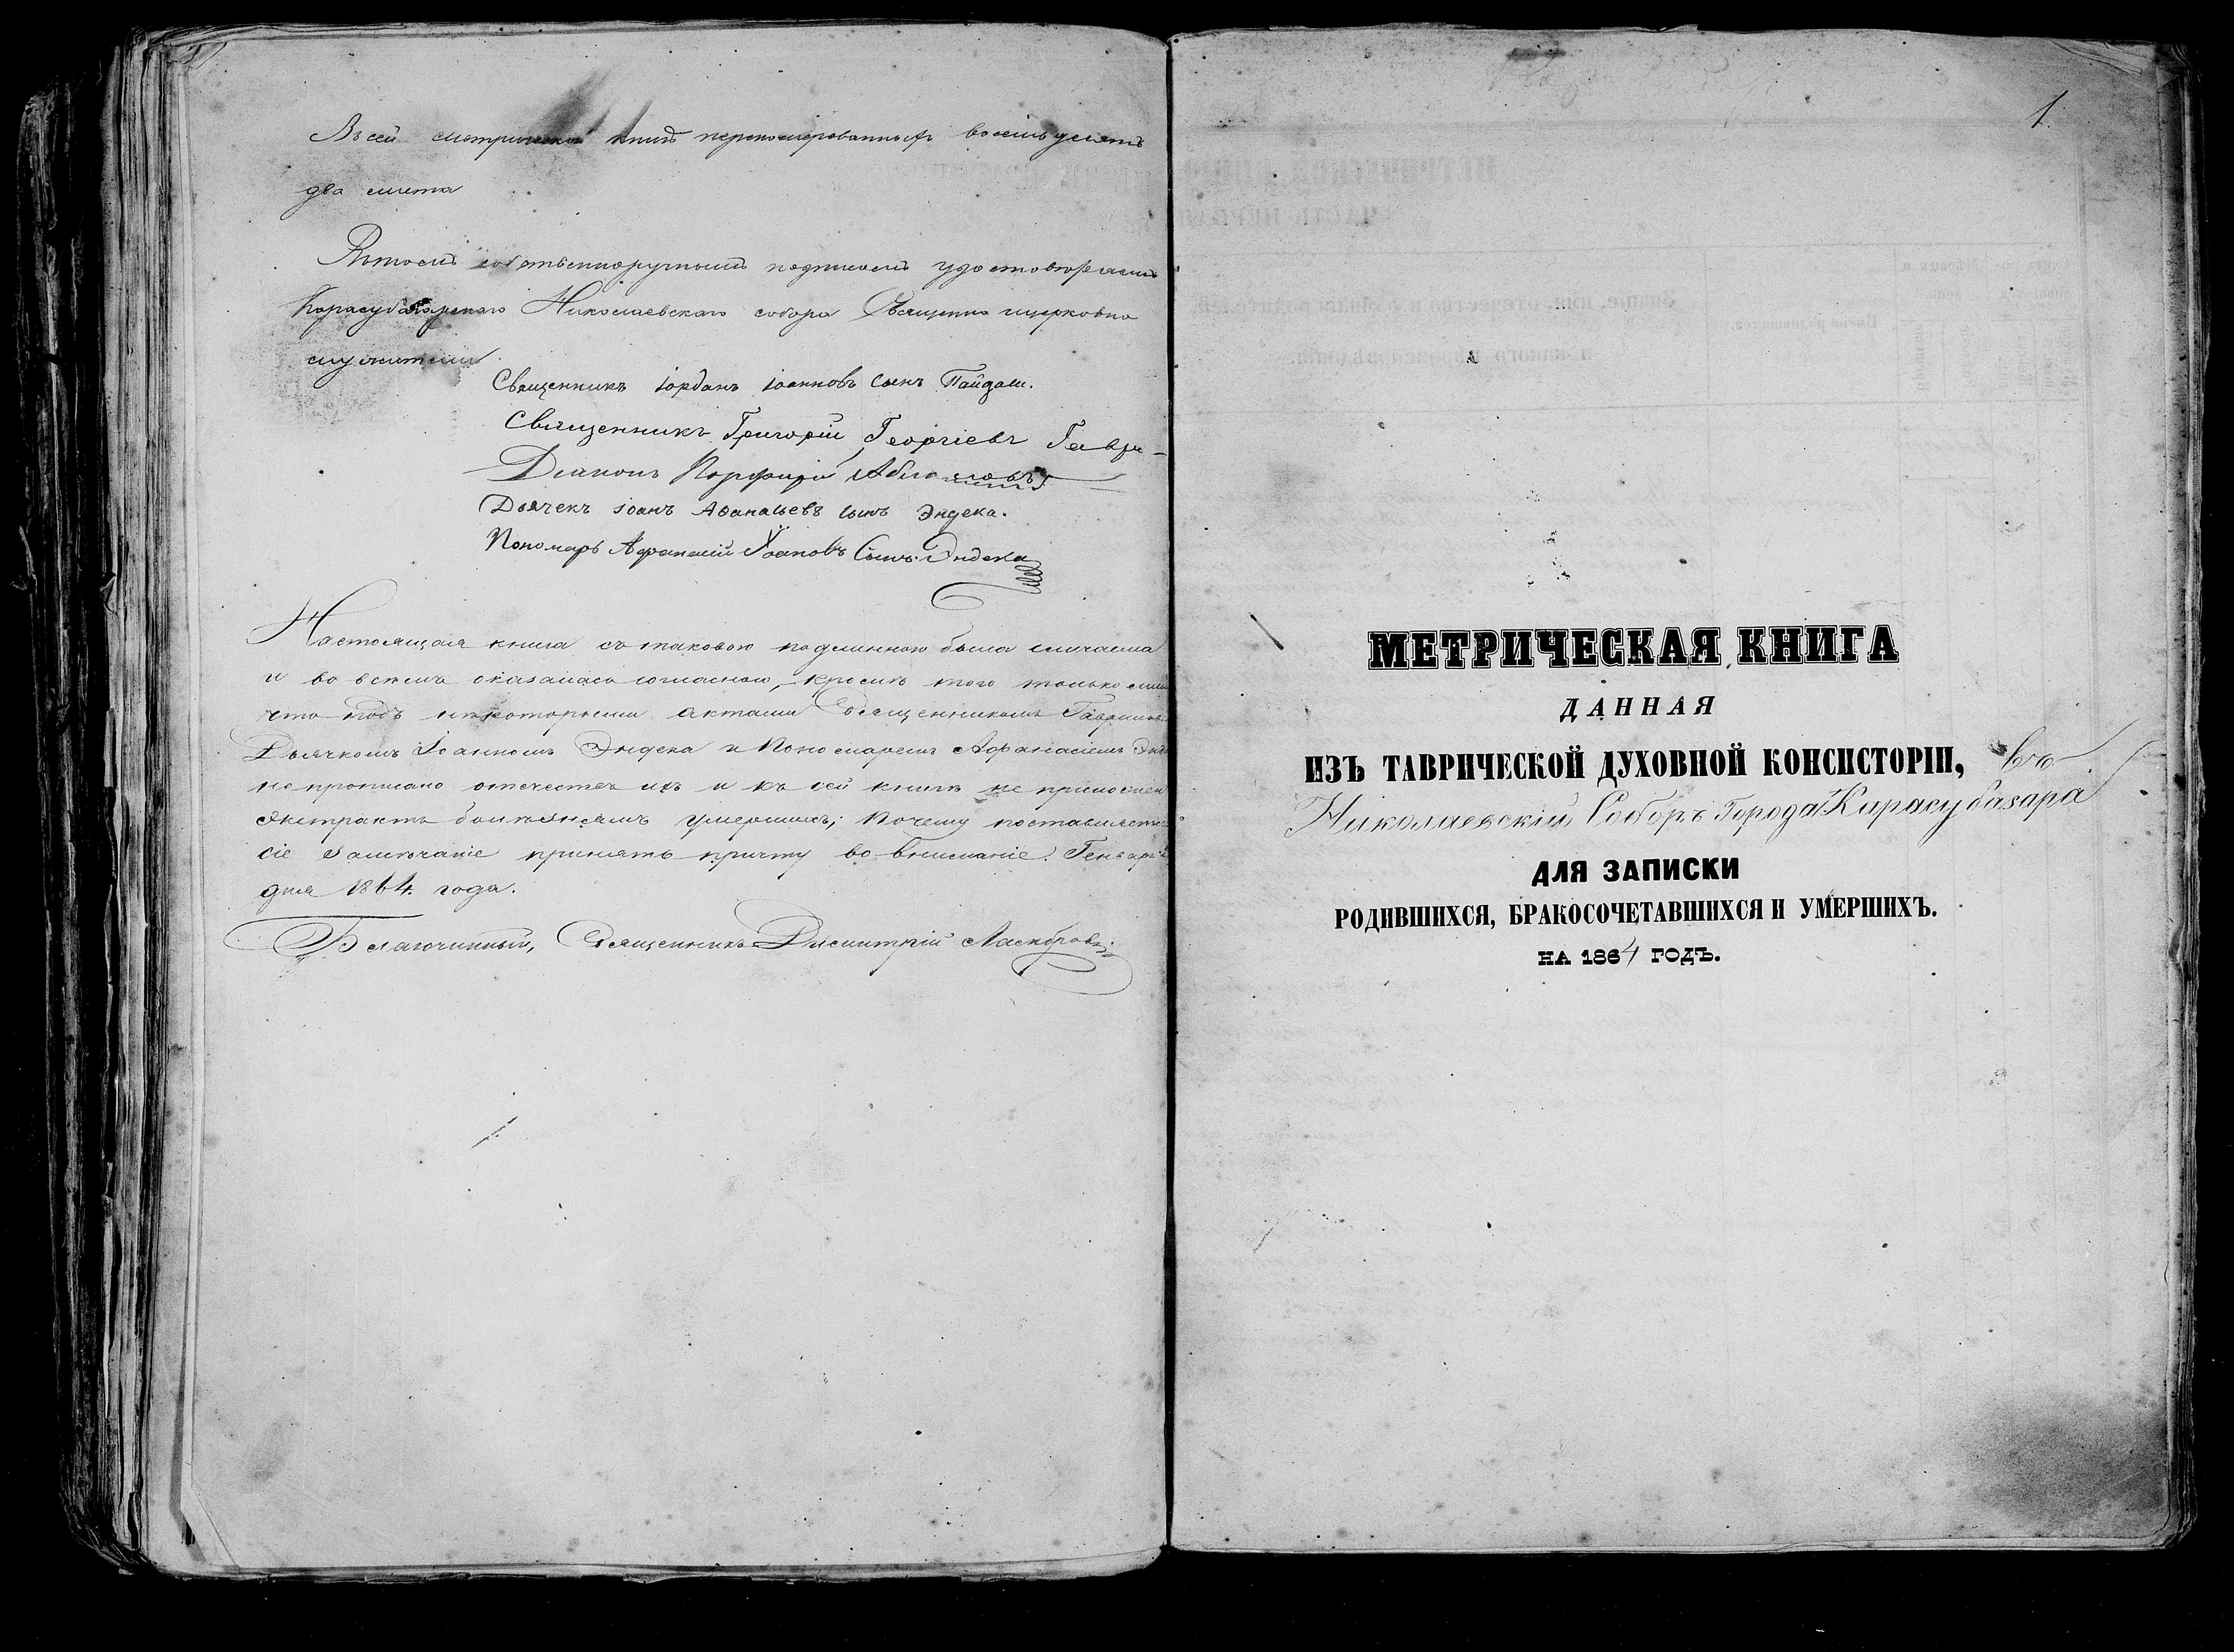 Въ сей метрической книгѣ перенумерованныхъ восемьдесятъ
два листа
Въ томъ собственноручнымъ подписомъ удостовѣряемъ
Карасубазарскаго Николаевскаго собора Священно церковно
служители
Священникъ Іорданъ Іоанновъ сынъ Пайдаш.
Священникъ Григорій Георгіевъ
Діаконъ Порфирій
Дьячекъ Іоанъ Аѳанасьевъ сынъ Эндека.
Пономарь Афанасій Іоановъ Сынъ Эндека
Настоящая книга съ таковою подлинною была сличаема
и во всемъ оказалась согласною, кромѣ того только
что подъ нѣкоторыми актами Священникомъ
Дьячкомъ Іоанномъ Эндека и Пономаремъ Афанасіемъ
не прописано отечества ихъ и къ сей книгѣ не
экстрактъ болѣзнямъ умершихъ; почему
сіе замѣчаніе принять причту во вниманіе. Генваря
дня 1864 года.
Благочинный, Священникъ Димитрій
1.
МЕТРИЧЕСКАЯ КНИГА
ДАННАЯ
ИЗЪ ТАВРИЧЕСКОЙ ДУХОВНОЙ КОНСИСТОРІИ, въ
Николаевскій Соборъ Города Карасубазара
ДЛЯ ЗАПИСКИ
РОДИВШИХСЯ, БРАКОСОЧЕТАВШИХСЯ И УМЕРШИХЪ.
НА 1864 ГОДЪ.